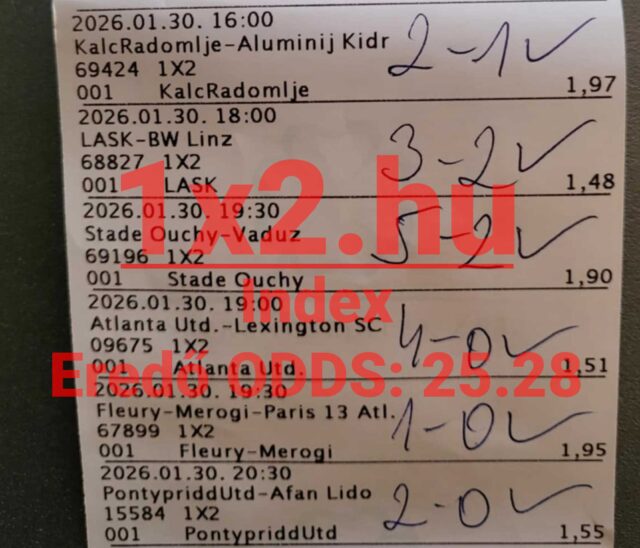 2026.01.30. 16:00
KalcRadomlje-Aluminij Kidr 2-1 ✓
69424 1X2
001 KalcRadomlje 1,97
2026.01.30. 18:00
LASK-BW Linz 3-2 ✓
68827 1X2
001 LASK 1,48
1x2.hu
2026.01.30. 19:30
Stade Ouchy-Vaduz 5-2 ✓
69196 1X2
001 Stade Ouchy 1,90
Index
2026.01.30. 19:00
Atlanta Utd.-Lexington SC 4-0 ✓
09675 1X2
001 Atlanta Utd. 1,51
Eredő ODDS: 25.28
2026.01.30. 19:30
Fleury-Merogi-Paris 13 Atl. 1-0 ✓
67899 1X2
001 Fleury-Merogi 1,95
2026.01.30. 20:30
PontypriddUtd-Afan Lido 2-0 ✓
15584 1X2
001 PontypriddUtd 1,55